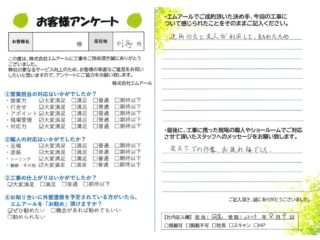 お客様アンケート
お客様名
様
所在地
市
この度は、株式会社エムアールに工事をご用命頂き誠にありがとう
ございました。
弊社の更なるサービス向上のため、お客様の率直なご意見をお伺い
したいと思いますので、アンケートにご協力をお願い致します。
①営業担当の対応はいかがでしたか？
・提案力 ☑大変満足 □満足 □普通 □期待以下
・行動力 ☑大変満足 □満足 □普通 □期待以下
・アポイント ☑大変満足 □満足 □普通 □期待以下
・現場管理 ☑大変満足 □満足 □普通 □期待以下
・対応力 ☑大変満足 □満足 □普通 □期待以下
②職人の対応はいかがでしたか？
・足場 ☑大変満足 □満足 □普通 □期待以下
・塗装 ☑大変満足 □満足 □普通 □期待以下
・シーリング ☑大変満足 □満足 □普通 □期待以下
☑大変満足 □満足 □普通 □期待以下
③工事の仕上がりはいかがでしたか？
☑大変満足 □満足 □普通 □期待以下
④お知り合いに外壁塗装を予定されている方がいたら、
エムアールを「お勧め」頂けますか？
☑ぜひ勧めたい □機会があれば勧めてもいい
□勧められない
・エムアールでご成約頂いた決め手、今回の工事に
ついて感じられたことをそのままご記入ください。
近所の
・最後に、工事に携った現場の職人やショールームでご対応
させて頂いたスタッフへのメッセージをお願い致します。
炎天下での作業、お疲れ様でした。
ご記入頂き、誠にありがとうございました。
【社内記入欄】担当：
受取：
□掲載可 □掲載不可 □社長 □スキャン □HP